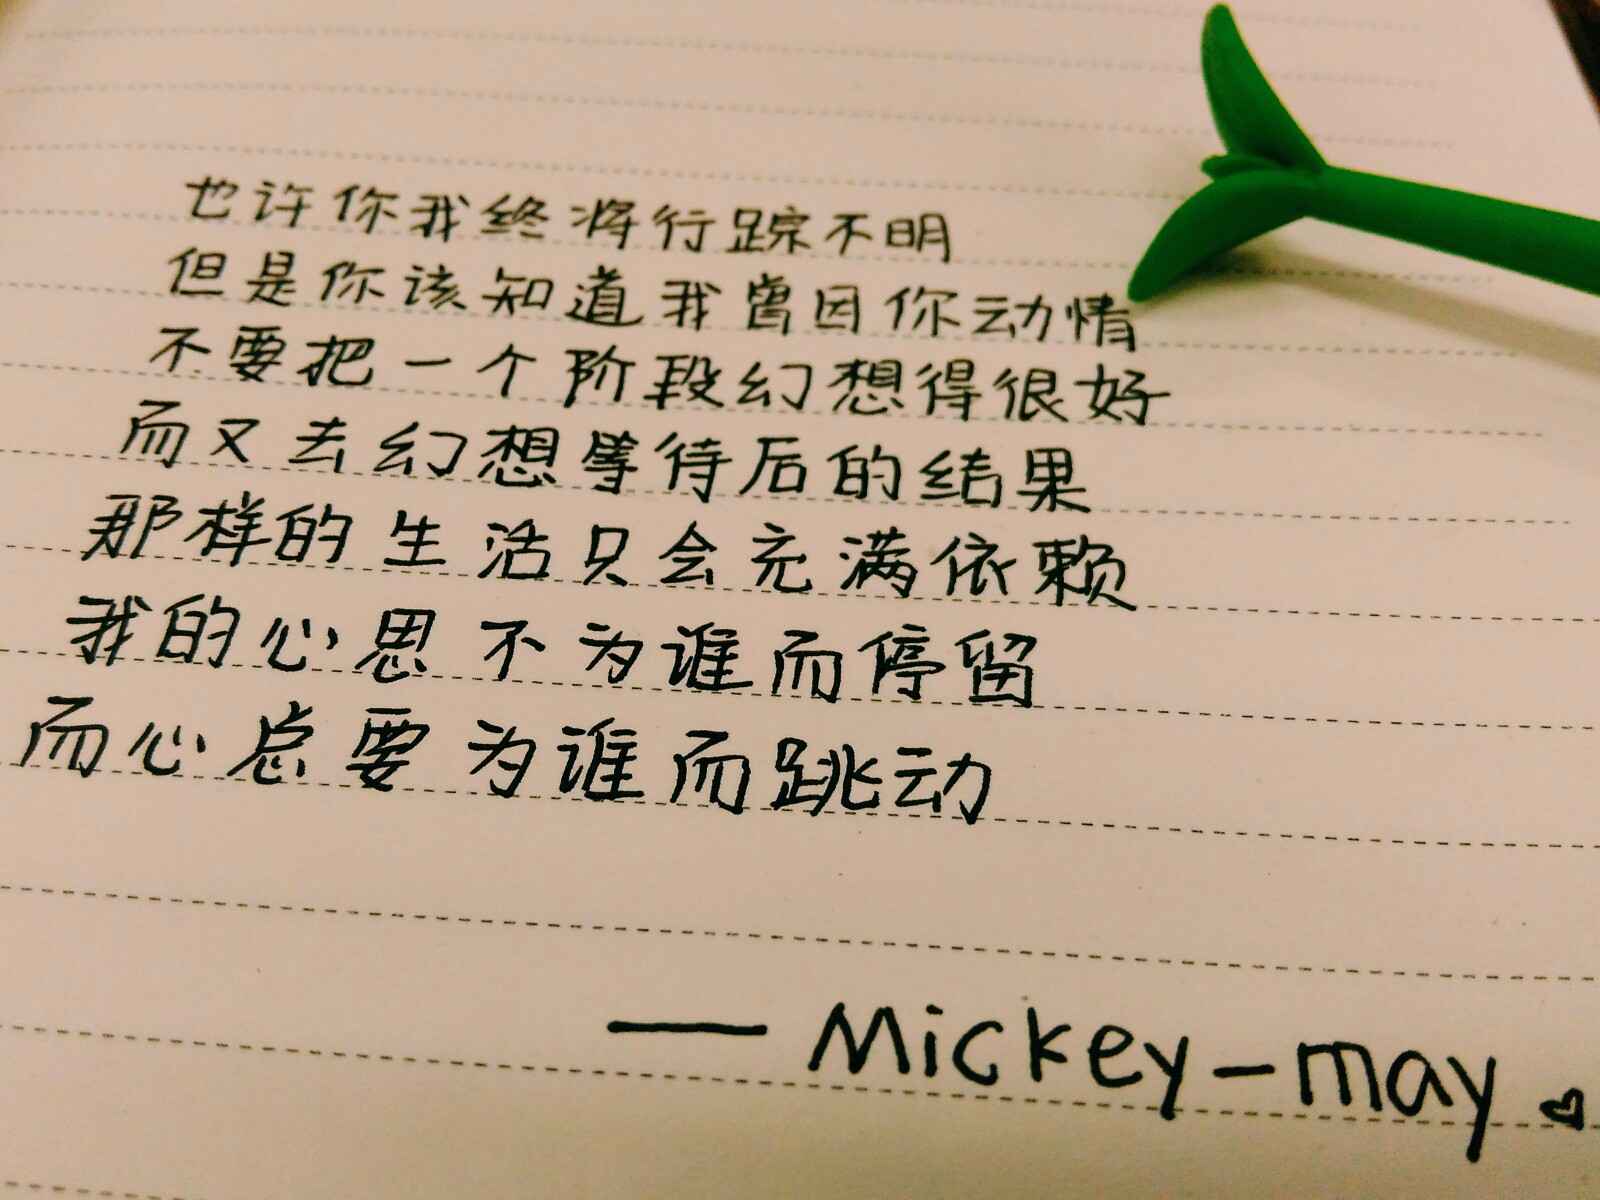 也许你我终将行踪不明
但是你该知道我曾因你动情
不要把一个阶段幻想得很好
而又去幻想等待后的结果
那样的生活只会充满依赖
我的心思不为谁而停留
而心总要为谁而跳动
— Mickey-may